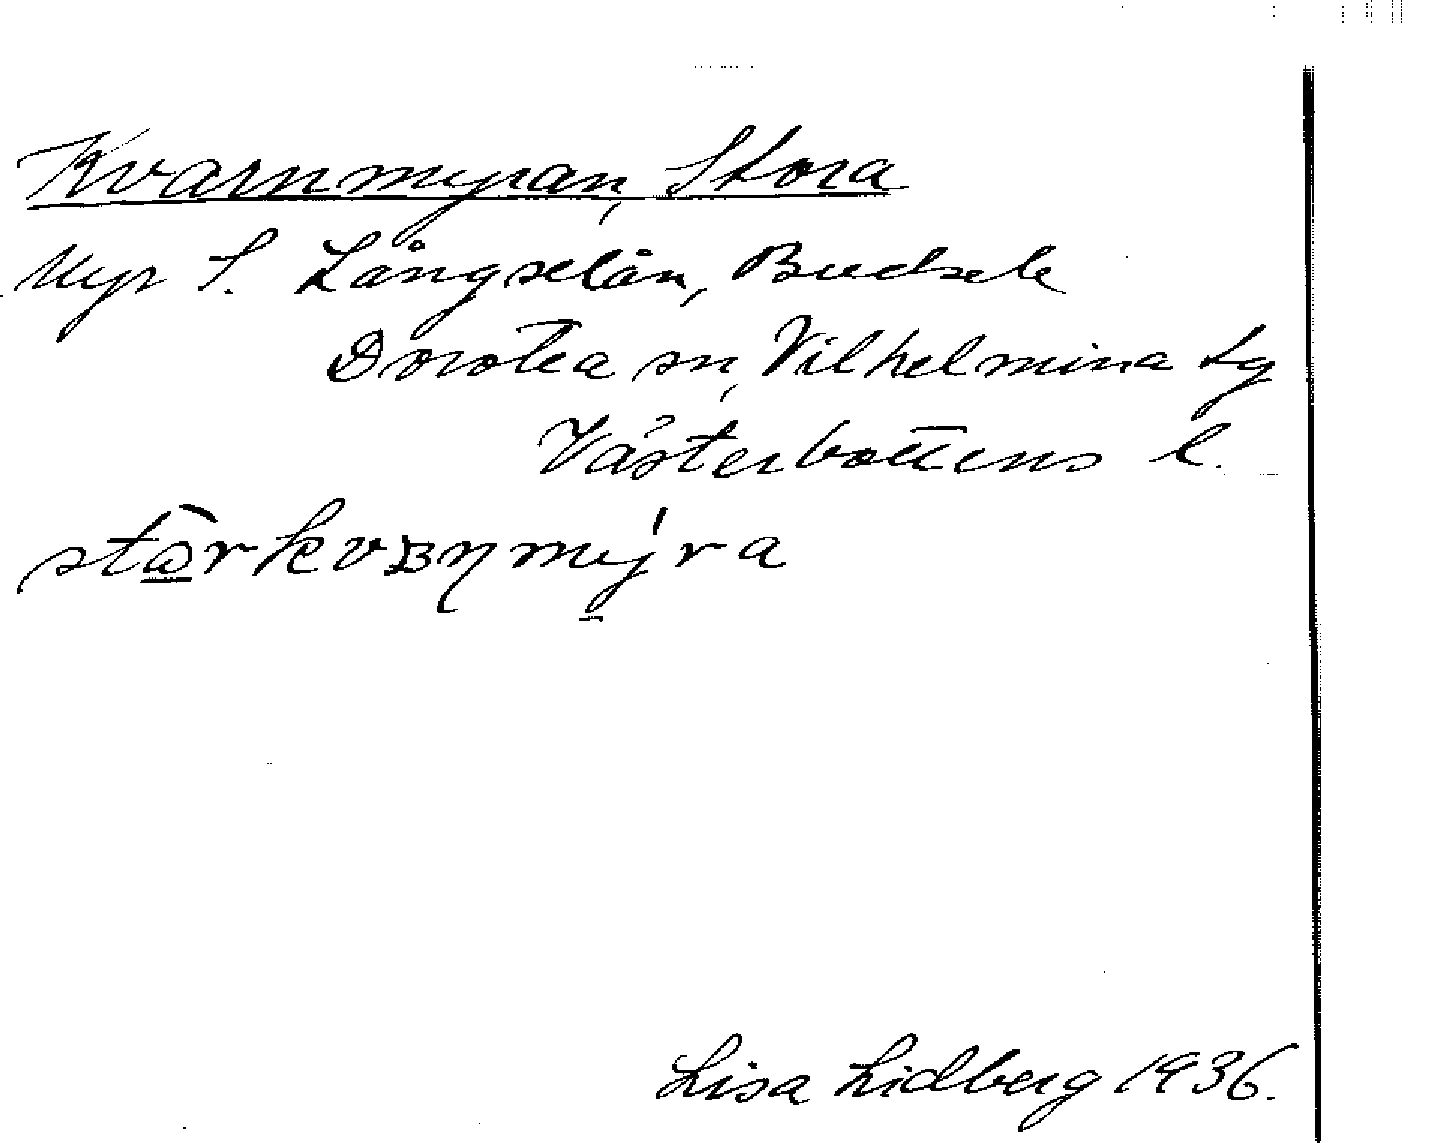 Kvarnmyran, Stora
Myr S. Långselån, Buksele
Dorotea sn, Vilhelmina tg
Västerbottens l.
Lisa Lidberg 1936.